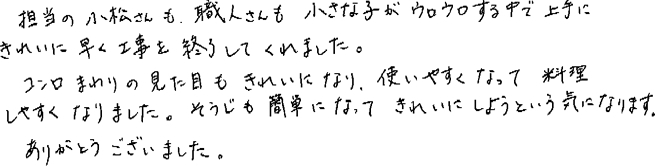 担当の小松さんも、職人さんも 小さな子がウロウロする中で上手に
きれいに早く工事を終了してくれました。
コンロまわりの見た目もきれいになり、使いやすくなって 料理
しやすくなりました。そうじも簡単になって きれいにしようという気になります。
ありがとうございました。